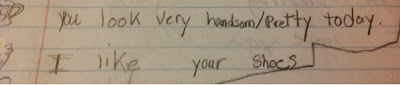 you look very handsom/Pretty today.
I like your shoes